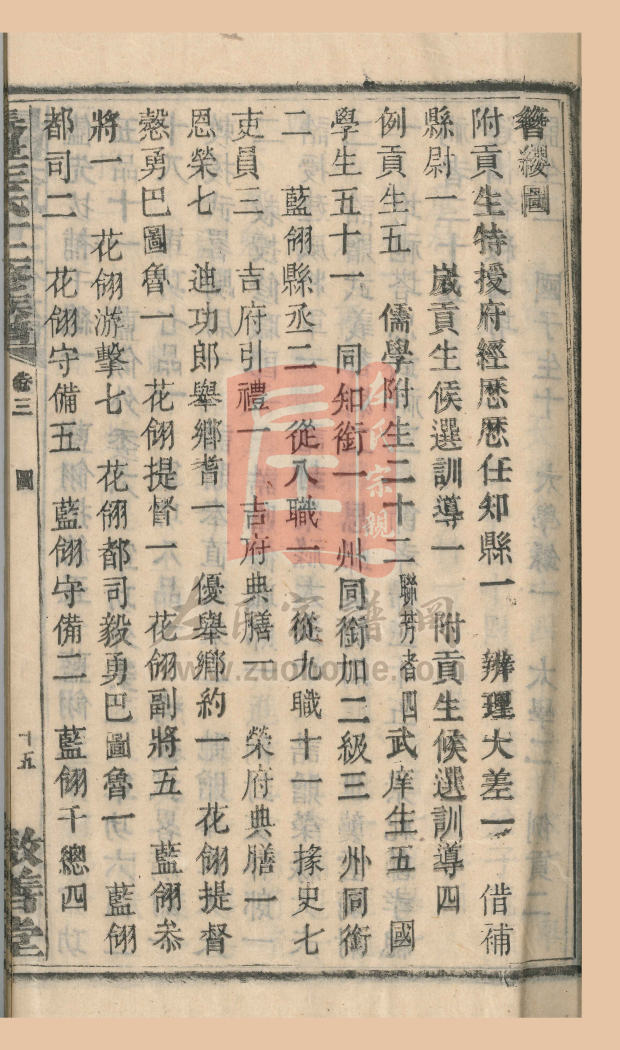 簪纓圖
附貢生特授府經歷歷任知縣一 辦理大差一 借補
縣尉一 歲貢生候選訓導一 附貢生候選訓導四
例貢生五 儒學附生二十二聯芳者四武庠生五 國
學生五十一 同知銜一 州同銜加二級三 州同銜
二 藍翎縣丞二 從八職一 從九職十一 掾史七
吏員三 吉府引禮一 吉府典膳一 榮府典膳一
恩榮七 迪功郎舉鄉耆一 優舉鄉約一 花翎提督
慤勇巴圖魯一 花翎提督一 花翎副將五 藍翎叅
將一 花翎游擊七 花翎都司毅勇巴圖魯一 藍翎
都司二 花翎守備五 藍翎守備二 藍翎千總四
卷三 圖 十五 敦善堂
www.zuojiahome.com